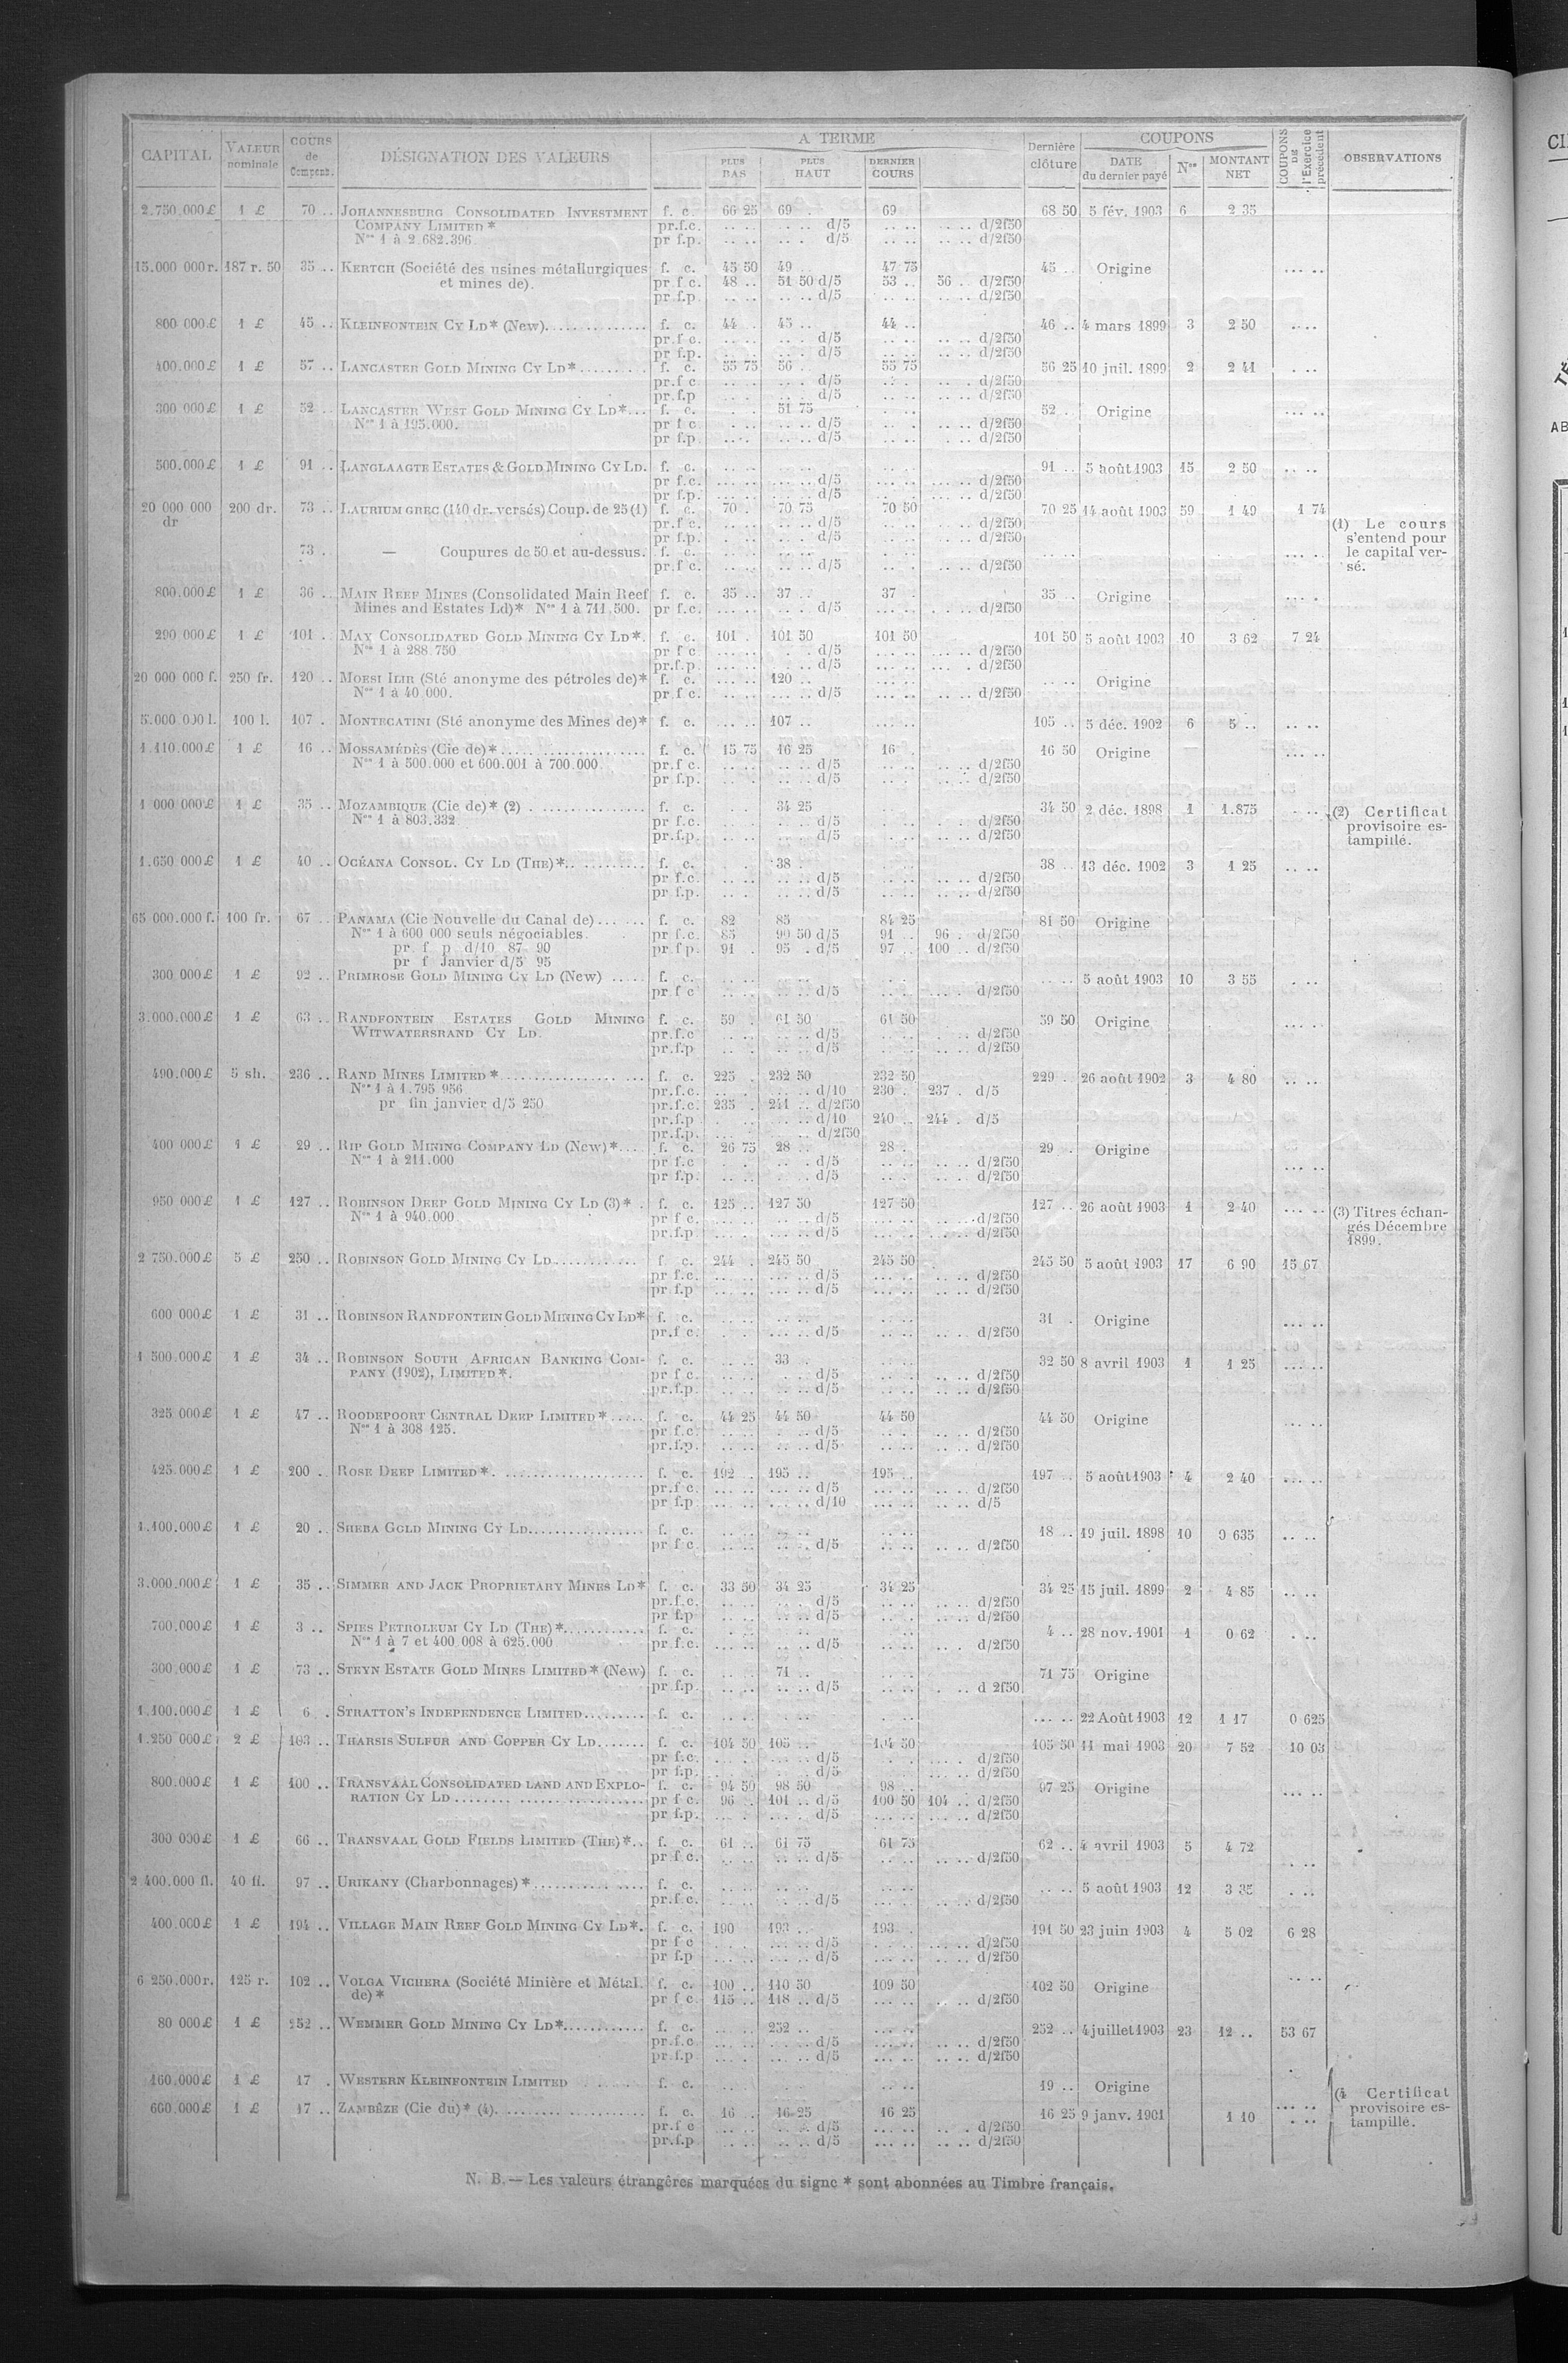 CAPITAL VALEUR nominale COURS de Compens. DÉSIGNATION DES VALEURS A TERME PLUS BAS PLUS HAUT DERNIER COURS Dernière clôture COUPONS DATE du dernier payé Nos MONTANT NET COUPONS DE l'Exercice précédent OBSERVATIONS
2.750.000£ 1 £ 70 .. JOHANNESBURG CONSOLIDATED INVESTMENT f. c. 66 25 69 . 69 68 50 5 fév. 1903 6 2 35
COMPANY LIMITED * pr.f.c. .. .. . .. d/5 .. .. .. .. d/2f50
Nos 1 à 2.682.396. pr f.p. .. .. . .. d/5 .. .. .. .. d/2f50
15.000 000r. 187 r. 50 35 .. KERTCH (Société des usines métallurgiques f. c. 45 50 49 .. 47 75 45 .. Origine ... ..
et mines de). pr.f c. 48 .. 51 50 d/5 53 .. 56 .. d/2f50
pr f.p. .. .. .. .. d/5 .. .. .. .. d/2f50
800 000£ 1 £ 45 .. KLEINFONTEIN CY LD* (New).............. f. c. 44 .. 45 .. 44 .. 46 .. 4 mars 1899 3 2 50 .. ..
pr.f c. .. .. .. . d/5 .. .. .. .. d/2f50
pr f.p. .. .. .. . d/5 .. .. .. .. d/2f50
400.000£ 1 £ 57 .. LANCASTER GOLD MINING CY LD*......... f. c. 55 75 56 .. 55 75 56 25 10 juil. 1899 2 2 41 . ..
pr.f c .. .. .. . d/5 .. .. . d/2f50
pr.f.p .. .. .. . d/5 .. .. .. .. d/2f50
300 000£ 1 £ 52 .. LANCASTER WEST GOLD MINING CY LD*... f. c. . . 51 75 . .. 52 . Origine ... ..
Nos 1 à 195.000. pr f c. .. .. .. .. d/5 .. .. .. .. d/2f50
pr f.p. .. .. .. .. d/5 .. .. . .. d/2f50
500.000£ 1 £ 91 .. LANGLAAGTE ESTATES & GOLD MINING CY LD. f. c. .. .. .. .. .. .. 91 .. 5 août 1903 15 2 50 .. ..
pr f.c. .. .. .. .. d/5 .. .. .. .. d/2f50
pr f.p. .. .. .. .. d/5 .. . .. .. d/2f50
20 000 000 200 dr. 73 .. LAURIUM GREC (140 dr. versés) Coup. de 25 (1) f. c. 70 . 70 75 70 50 70 25 14 août 1903 59 1 49 1 74
dr pr.f c. .. .. .. .. d/5 .. .. .. .. d/2f50 (1) Le cours
pr f.p. . .. .. .. d/5 .. . .. .. d/2f50 s'entend pour
73 . — Coupures de 50 et au-dessus. f. c. .. .. .. .. .. .. .. .. ... .. le capital ver-
pr.f c. .. .. .. .. d/5 .. . .. .. d/2f50 sé.
800.000£ 1 £ 36 .. MAIN REEF MINES (Consolidated Main Reef f. c. 35 .. 37 .. 37 . 35 .. Origine ... .
Mines and Estates Ld)* Nos 1 à 711.500. pr f.c. ... .. .. . d/5 ... .. . . .. d/2f50
290 000£ 1 £ 101 . MAY CONSOLIDATED GOLD MINING CY LD*. f. c. 101 . 101 50 101 50 101 50 5 août 1903 10 3 62 7 24
Nos 1 à 288.750 pr f c ... .. . . d/5 ... .. ... .. d/2f50
pr.f.p. ... .. .. .. d/5 ... .. ... . d/2f50
20 000 000 f. 250 fr. 120 .. MOESI ILIR (Sté anonyme des pétroles de)* f. c. ... .. 120 .. .. .. Origine
Nos 1 à 40 000. pr.f c. ... .. ... .. d/5 ... .. ... .. d/2f50
5.000.000 l. 100 l. 107 . MONTECATINI (Sté anonyme des Mines de)* f. c. ... .. 107 .. ... .. 105 .. 5 déc. 1902 6 5 .. .. ..
1.110.000£ 1 £ 16 .. MOSSAMÉDÈS (Cie de)*................... f. c. 15 75 16 25 16 . 16 50 Origine ... ..
Nos 1 à 500.000 et 600.001 à 700.000. pr.f c. .. .. .. .. d/5 .. .. .. .. d/2f50
pr f.p. .. .. .. .. d/5 .. .. .. .. d/2f50
1 000 000£ 1 £ 35 .. MOZAMBIQUE (Cie de)* (2) . .............. f. c. . . 34 25 . .. 34 50 2 déc. 1898 1 1.875 . .. (2) Certificat
Nos 1 à 803.332 pr f.c. .. .. . . d/5 .. .. .. . d/2f50 provisoire es-
pr.f.p. .. .. .. . d/5 .. .. .. .. d/2f50 tampillé.
1.650 000£ 1 £ 40 .. OCÉANA CONSOL. CY LD (THE)*............ f. c. . . 38 . . .. 38 .. 13 déc. 1902 3 1 25 .. ..
pr f.c. .. .. .. .. d/5 .. .. .. .. d/2f50
pr f.p. .. .. .. .. d/5 .. .. .. .. d/2f50
65 000.000 f. 100 fr. 67 .. PANAMA (Cie Nouvelle du Canal de)... ... f. c. 82 85 84 25 81 50 Origine
Nos 1 à 600 000 seuls négociables. pr f.c. 85 90 50 d/5 91 .. 96 . d/2f50
pr. f p d/10 87 90 pr f p. 91 . 95 . d/5 97 .. 100 .. d/2f50
pr f Janvier d/5 95
300 000£ 1 £ 92 .. PRIMROSE GOLD MINING CY LD (New) ..... f. c. .. .. .. .. .. .. .. .. 5 août 1903 10 3 55 . ..
pr.f c .. .. .. .. d/5 .. . ... . d/2f50
3.000.000£ 1 £ 63 .. RANDFONTEIN ESTATES GOLD MINING f. c. 59 . 61 50 61 50 59 50 Origine ... ..
WITWATERSRAND CY LD. pr.f.c .. . .. .. d/5 .. .. . .. d/2f50
pr.f.p .. . .. .. d/5 .. .. .. .. d/2f50
490.000£ 5 sh. 236 .. RAND MINES LIMITED *.................. f. c. 225 . 232 50 232 50 229 . 26 août 1902 3 4 80 .. ..
Nos 1 à 1.795 956 pr.f.c. .. . .. .. d/10 230 . 237 . d/5
pr fin janvier d/5 250 pr.f.c. 235 . 241 .. d/2f50
pr.f.p . .. .. d/10 240 .. 244 . d/5
pr.f.p. ... .. .. d/2f50
400 000£ 1 £ 29 .. RIP GOLD MINING COMPANY LD (New)*... f. c. 26 75 28 .. 28 . 29 . Origine
Nos 1 à 211.000 pr f.c .. .. .. . d/5 .. .. .. .. d/2f50 ... ..
pr f.p. .. .. .. .. d/5 .. .. .. .. d/2f50
950 000£ 1 £ 127 .. ROBINSON DEEP GOLD MINING CY LD (3)* . f. c. 125 .. 127 50 127 50 127 .. 26 août 1903 1 2 40 ... .. (3) Titres échan-
Nos 1 à 940.000 pr f c. .. .. .. .. d/5 ... .. .. .. d/2f50 gés Décembre
pr.f.p. .. .. .. .. d/5 ... .. .. .. d/2f50 1899.
2 750.000£ 5 £ 250 .. ROBINSON GOLD MINING CY LD........... f c. 244 . 245 50 245 50 245 50 5 août 1903 17 6 90 15 67
pr f.c. ... .. ... .. d/5 ... .. .. .. d/2f50
pr f.p ... .. ... .. d/5 ... .. .. .. d/2f50
600 000£ 1 £ 31 .. ROBINSON RANDFONTEIN GOLD MINING CY LD* f. c. .. .. .. .. .. .. 31 . Origine ... ..
pr.f c. . . ... .. d/5 .. .. .. .. d/2f50
1 500.000£ 1 £ 34 .. ROBINSON SOUTH AFRICAN BANKING COM- f. c. .. .. 33 .. . .. 32 50 8 avril 1903 1 1 25 ... ..
PANY (1902), LIMITED *. pr f c. .. .. . . d/5 .. .. .. .. d/2f50
pr.f.p .. .. .. .. d/5 .. .. .. .. d/2f50
325 000£ 1 £ 47 .. ROODEPOORT CENTRAL DEEP LIMITED *..... f. c. 44 25 44 50 44 50 44 50 Origine ... ..
Nos 1 à 308 125. pr f.c. .. .. . . d/5 .. .. .. .. d/2f50
pr.f.p. .. .. .. .. d/5 .. .. .. .. d/2f50
425.000£ 1 £ 200 .. ROSE DEEP LIMITED *. .................. f. c. 192 . 195 .. 195 .. 197 .. 5 août 1903 4 2 40 ... ..
pr.f c. ... .. ... .. d/5 ... .. .. .. d/2f50
pr f.p ... .. . .. .. d/10 ... .. .. .. d/5
1.100.000£ 1 £ 20 .. SHEBA GOLD MINING CY LD................ f. c. .. .. .. .. .. .. 18 .. 19 juil. 1898 10 0 635 .. ..
pr f c. .. .. .. .. d/5 .. .. .. .. d/2f50
3.000.000£ 1 £ 35 .. SIMMER AND JACK PROPRIETARY MINES LD* f. c. 33 50 34 25 34 25 34 25 15 juil. 1899 2 4 85 .. ..
pr.f.c. .. .. .. . d/5 .. .. .. .. d/2f50
pr f.p .. .. .. .. d/5 .. .. .. .. d/2f50
700.000£ 1 £ 3 .. SPIES PETROLEUM CY LD (THE)*............ f. c. . .. .. .. . .. 4 .. 28 nov. 1901 1 0 62 . ..
Nos 1 à 7 et 400.008 à 625.000 pr f.c. ... .. .. .. d/5 .. .. . d/2f50
300 000£ 1 £ 73 .. STEYN ESTATE GOLD MINES LIMITED * (New) f. c. .. . 71 .. .. .. 71 75 Origine
pr f.p. .. .. .. .. d/5 .. . . .. d 2f50
1.100.000£ 1 £ 6 . STRATTON'S INDEPENDENCE LIMITED......... f. c. .. .. .. .. . .. ... .. 22 Août 1903 12 1 17 0 625
1.250 000£ 2 £ 103 .. THARSIS SULFUR AND COPPER CY LD....... f. c. 104 50 105 .. 104 50 105 50 11 mai 1903 20 7 52 10 03
pr f.c. .. . ... .. d/5 . . . .. d/2f50
pr f.p. .. . .. . d/5 .. .. .. .. d/2f50
800.000£ 1 £ 100 .. TRANSVAAL CONSOLIDATED LAND AND EXPLO- f. c. 94 50 98 50 98 .. 97 25 Origine ... ..
RATION CY LD........ .................... pr f c. 96 . 101 .. d/5 100 50 104 .. d/2f50
pr f.p. ... . .. .. d/5 ... .. .. .. d/2f50
300 000£ 1 £ 66 .. TRANSVAAL GOLD FIELDS LIMITED (THE)*.. f. c. 61 .. 61 75 61 75 62 .. 4 avril 1903 5 4 72
pr f c. .. .. .. .. d/5 .. .. .. .. d/2f50 . ..
2 400.000 fl. 40 fl. 97 .. URIKANY (Charbonnages)*................ f. c. .. .. .. .. .. .. .. .. 5 août 1903 12 3 35 . ..
pr.f.c. .. .. . . d/5 ... .. .. .. d/2f50
400.000£ 1 £ 194 .. VILLAGE MAIN REEF GOLD MINING CY LD*. f. c. 190 193 .. 193 . 191 50 23 juin 1903 4 5 02 6 28
pr f c . . ... .. d/5 ... . ... .. d/2f50
pr f.p .. .. ... .. d/5 ... .. .. .. d/2f50
6 250.000r. 125 r. 102 .. VOLGA VICHERA (Société Minière et Métal. f. c. 100 .. 110 50 109 50 102 50 Origine .. ..
de)* pr f c. 115 .. 118 .. d/5 ... .. .. .. d/2f50
80 000£ 1 £ 252 .. WEMMER GOLD MINING CY LD*............ f. c. ... .. 252 .. ... .. 252 .. 4 juillet 1903 23 12 .. 53 67
pr.f.c ... .. ... .. d/5 ... .. .. .. d/2f50
pr f.p ... .. ... .. d/5 ... .. .. .. d/2f50
160.000£ 1 £ 17 . WESTERN KLEINFONTEIN LIMITED ........ f. c. .. . .. .. 19 .. Origine (4 Certificat
600.000£ 1 £ 17 .. ZAMBÈZE (Cie du)* (4).................... f. c. 16 .. 16 25 16 25 16 25 9 janv. 1901 1 10 ... .. provisoire es-
pr.f c .. .. .. .. d/5 ... .. .. . d/2f50 tampillé.
pr.f.p .. .. .. .. d/5 ... .. .. .. d/2f50
N. B. — Les valeurs étrangères marquées du signe * sont abonnées au Timbre français.